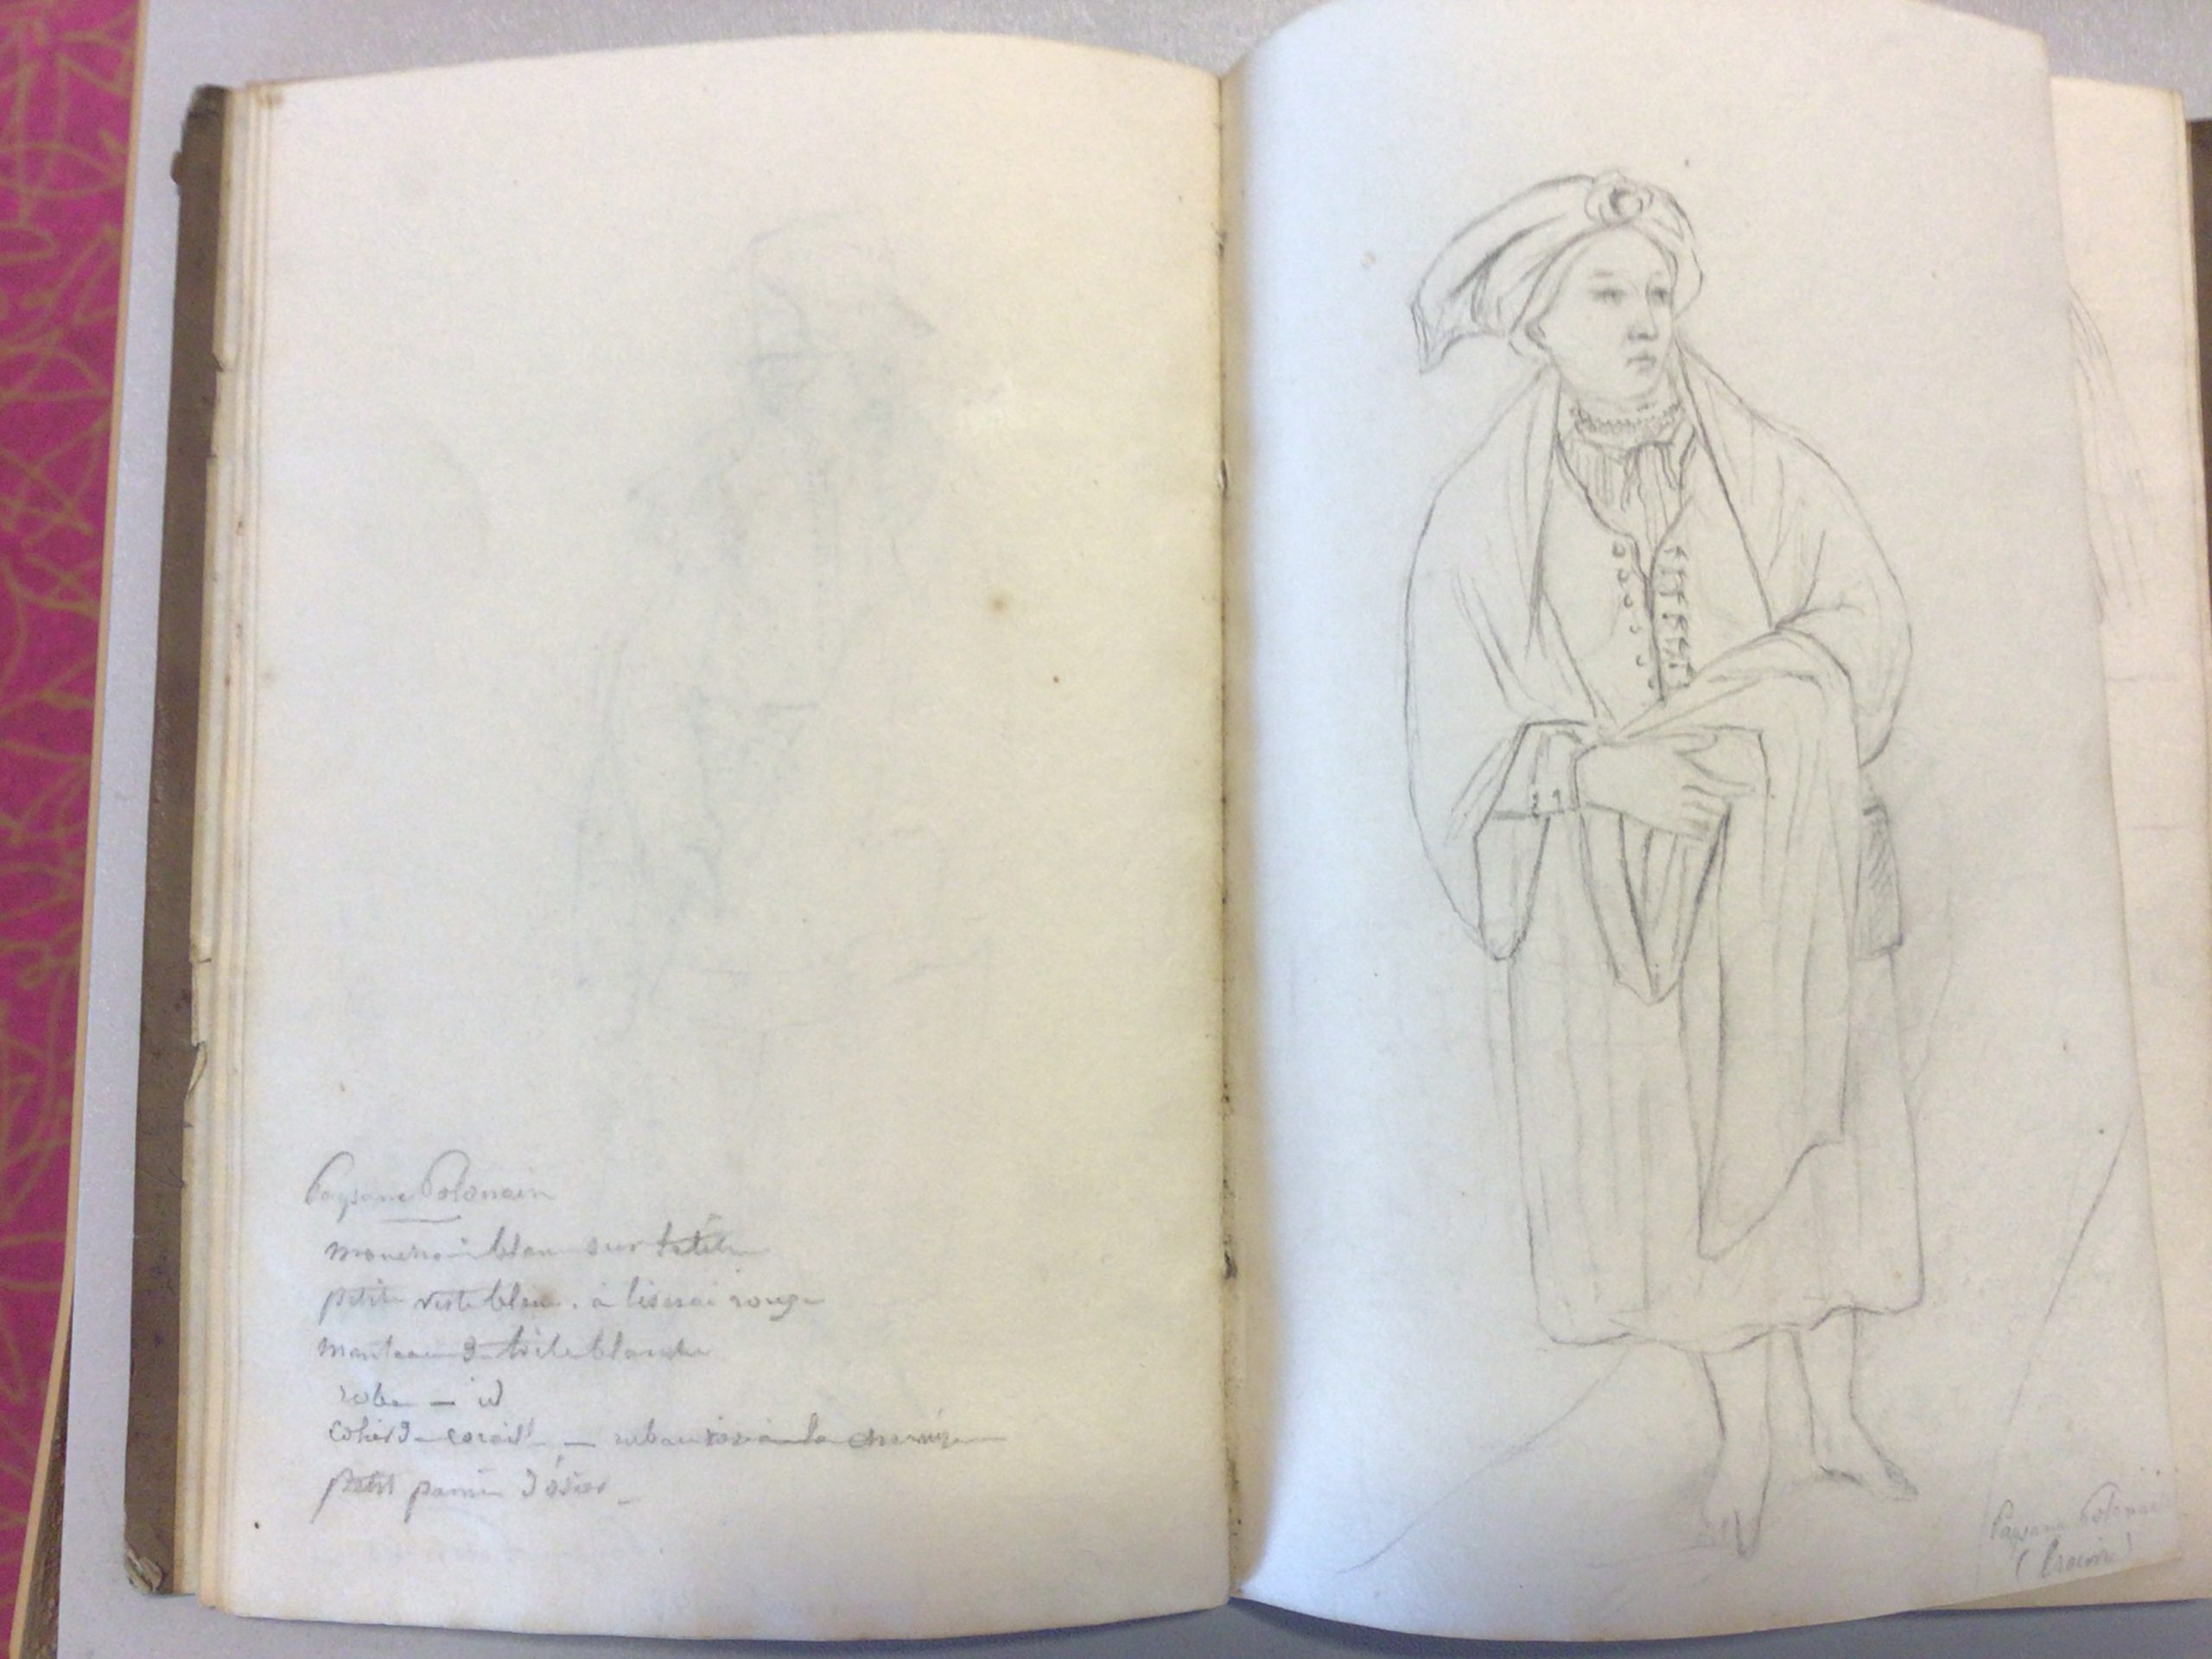 Paysane Polonain
mouchoir blanc sur la tête
petite veste bleue. à liserai rouge
manteau de toile blanche
robe — id
colier de corail — ruban rose à la chemise
petit panier d'osier —
Paysane Polonai